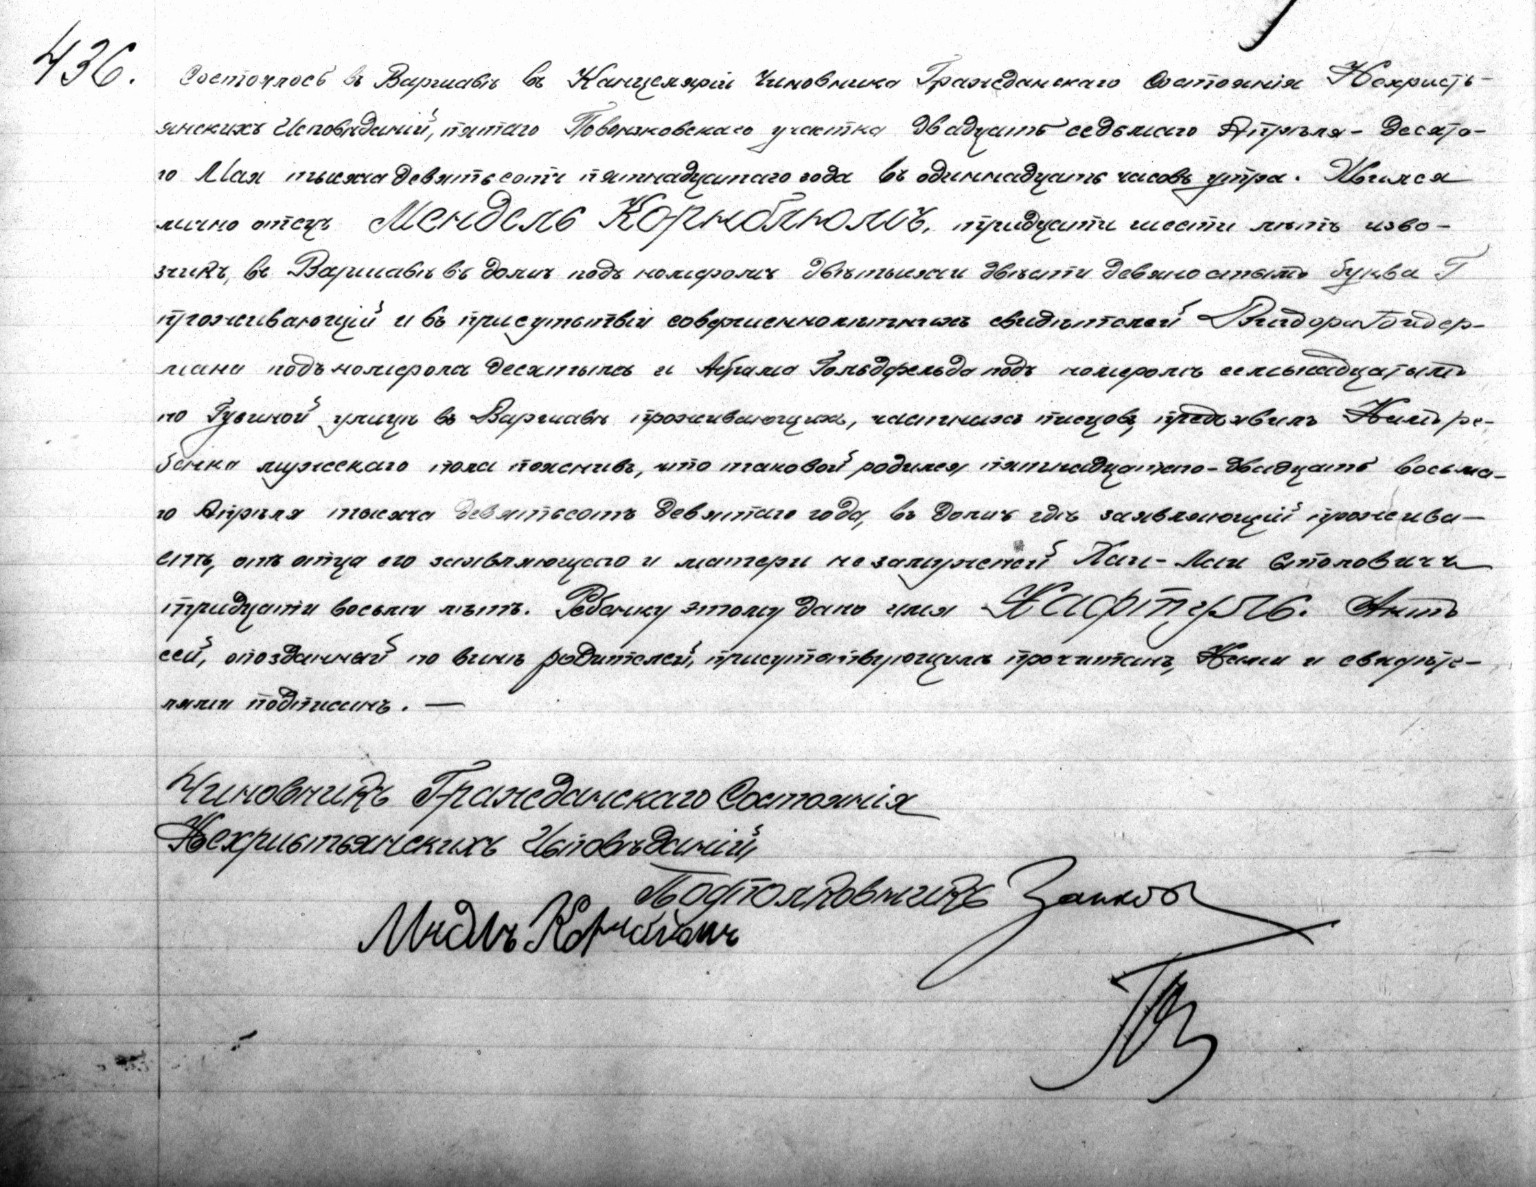 436.
Состоялось въ Варшавѣ въ Канцеляріи Чиновника Гражданскаго Состоянія Нехристь-
янскихъ Исповѣданій, пятаго Повонзковскаго участка двадцать седьмаго Апрѣля - десята-
го Мая тысяча девятьсотъ пятнадцатаго года въ одиннадцать часовъ утра. Явился
лично отецъ Мендель Корнблюмъ, тридцати шести лѣтъ изво-
щикъ, въ Варшавѣ въ домѣ подъ номеромъ двѣ тысячи двѣсти девяностымъ буква Г
проживающій и въ присутствіи совершеннолѣтнихъ свидѣтелей
мана подъ номеромъ десятымъ и Абрама Гольдфельда подъ номеромъ семьнадцатымъ
по Гусиной улицѣ въ Варшавѣ проживающихъ, частныхъ писцовъ, предъявилъ Намъ ре-
бенка мужескаго пола пояснивъ, что таковой родился пятнадцатаго - двадцать восьма-
го Апрѣля тысяча девятьсотъ девятаго года, въ домѣ гдѣ заявляющій прожива-
етъ, отъ отца его заявляющаго и матери незамужней Хаи-Маи Столовичъ
тридцати восьми лѣтъ. Ребенку этому дано имя Нафтуль. Актъ
сей, опозданный по винѣ родителей, присутствующимъ прочитанъ, Нами и свидѣте-
лями подписанъ. —
Чиновникъ Гражданскаго Состоянія
Нехристьянскихъ Исповѣданій,
Подполковникъ
Мндль Корнблюмъ